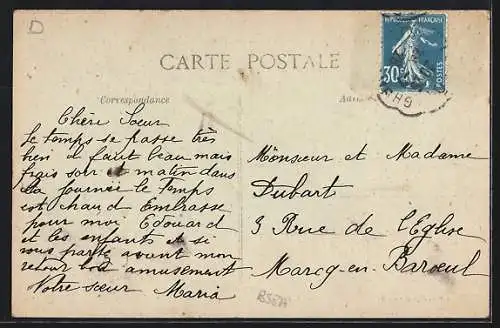 D
CARTE POSTALE
RÉPUBLIQUE FRANÇAISE
30c
POSTES
Correspondance
Chère Sœur
le temps se passe très
bien il faut beau mais
frais soir et matin dans
la journée le temps
est chaud Embrasse
pour moi Edouard
et les enfants et si
vous parte avant mon
retour bon amusement
Votre sœur Maria
Monsieur et Madame
Dubart
3 Rue de l'Eglise
Marcq-en-Barœul